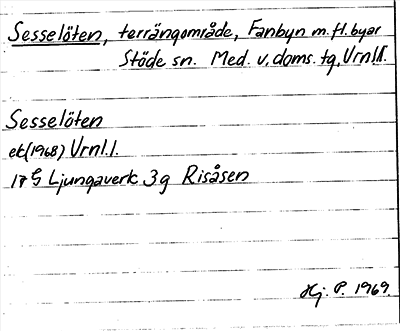 Sesselöten, terrängområde, Fanbyn m.fl. byar
Stöde sn. Med. v. doms. tg, Vrnl.l.
Sesselöten
ek(1968) Vrnl.l.
17 G Ljungaverk 3g Risåsen
Hj. P. 1969.